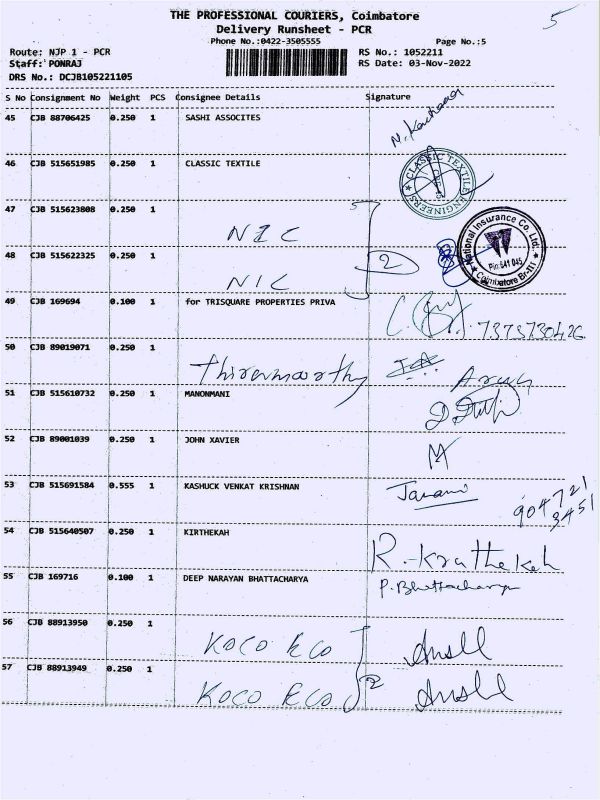 THE PROFESSIONAL COURIERS, Coimbatore
5
Delivery Runsheet - PCR
Phone No.:0422-3505555
Page No.:5
Route: NJP 1 - PCR
RS No.: 1052211
Staff: PONRAJ
RS Date: 03-Nov-2022
DRS No.: DCJB105221105
S No Consignment No Weight PCS Consignee Details Signature
45 CJB 88706425 0.250 1 SASHI ASSOCITES
46 CJB 515651985 0.250 1 CLASSIC TEXTILE
CLASSIC TEXTILE ENGINEERS
47 CJB 515623808 0.250 1
NIC
National Insurance Co. Ltd.
Pin:641 045
Coimbatore Br-III
48 CJB 515622325 0.250 1
2
NIC
49 CJB 169694 0.100 1 for TRISQUARE PROPERTIES PRIVA
50 CJB 89019071 0.250 1
Thirumoorthy
51 CJB 515610732 0.250 1 MANONMANI
52 CJB 89001039 0.250 1 JOHN XAVIER
53 CJB 515691584 0.555 1 KASHUCK VENKAT KRISHNAN
Janani
904721
3451
54 CJB 515640507 0.250 1 KIRTHEKAH
R.-Kruthekah
55 CJB 169716 0.100 1 DEEP NARAYAN BHATTACHARYA
P.Bhattacharya
56 CJB 88913950 0.250 1
KOCO ECO
57 CJB 88913949 0.250 1
2
KOCO ECO